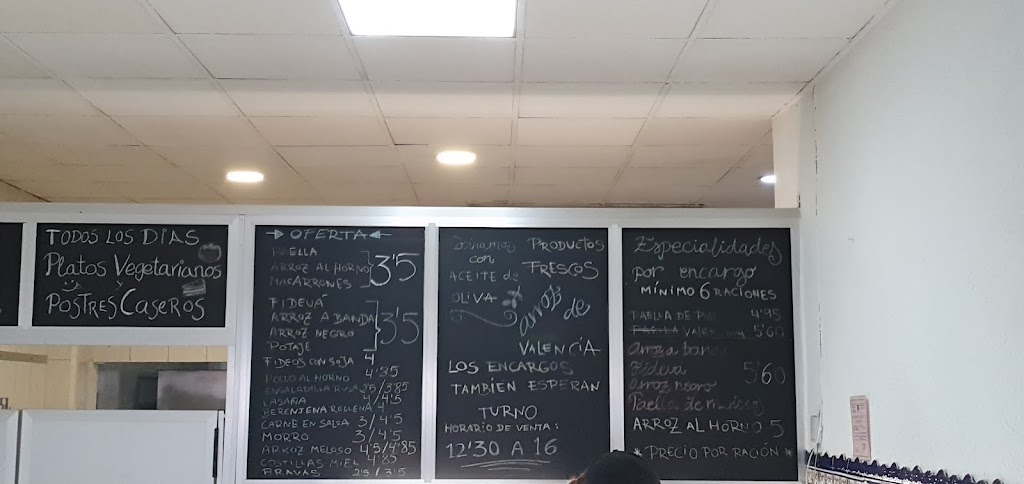 TODOS LOS DÍAS
PLATOS VEGETARIANOS
Y
POSTRES CASEROS
OFERTA
PAELLA
ARROZ AL HORNO 3'5
MACARRONES
FIDEUÁ
ARROZ A BANDA 3'5
ARROZ NEGRO
POTAJE
FIDEOS CON SOJA 4
POLLO AL HORNO 4'35
ENSALADILLA RUSA 2'5/3'85
LASAÑA 4/4'5
BERENJENA RELLENA 4
CARNE EN SALSA 3/4'5
MORRO 3/4'5
ARROZ MELOSO 4'5/4'85
COSTILLAS MIEL 4'85
BRAVAS 2'5/3'5
PRODUCTOS
con FRESCOS
ACEITE de
OLIVA
arroz de
VALENCIA
LOS ENCARGOS
TAMBIEN ESPERAN
TURNO
HORARIO DE VENTA:
12'30 A 16
Especialidades
por encargo
MÍNIMO 6 RACIONES
PAELLA DE 4'95
PAELLA VALEN 5'60
Arroz a banda
Fideua 5'60
Arroz negro
Paella de marisco
ARROZ AL HORNO 5
* PRECIO POR RACIÓN *